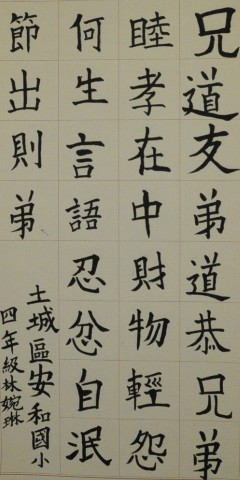 兄道友弟道恭兄弟
睦孝在中財物輕怨
何生言語忍忿自泯
節出則弟
土城區安和國小
四年級林婉琳